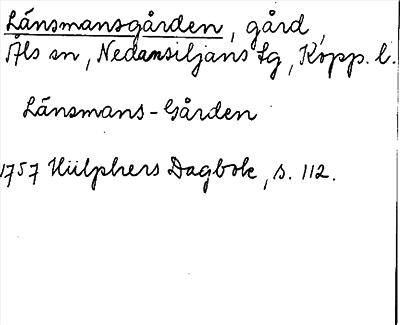 Länsmansgården, gård,
Åls sn, Nedansiljans fg, Kopp. l.
Länsmans-Gården
1757 Hülphers Dagbok, s. 112.